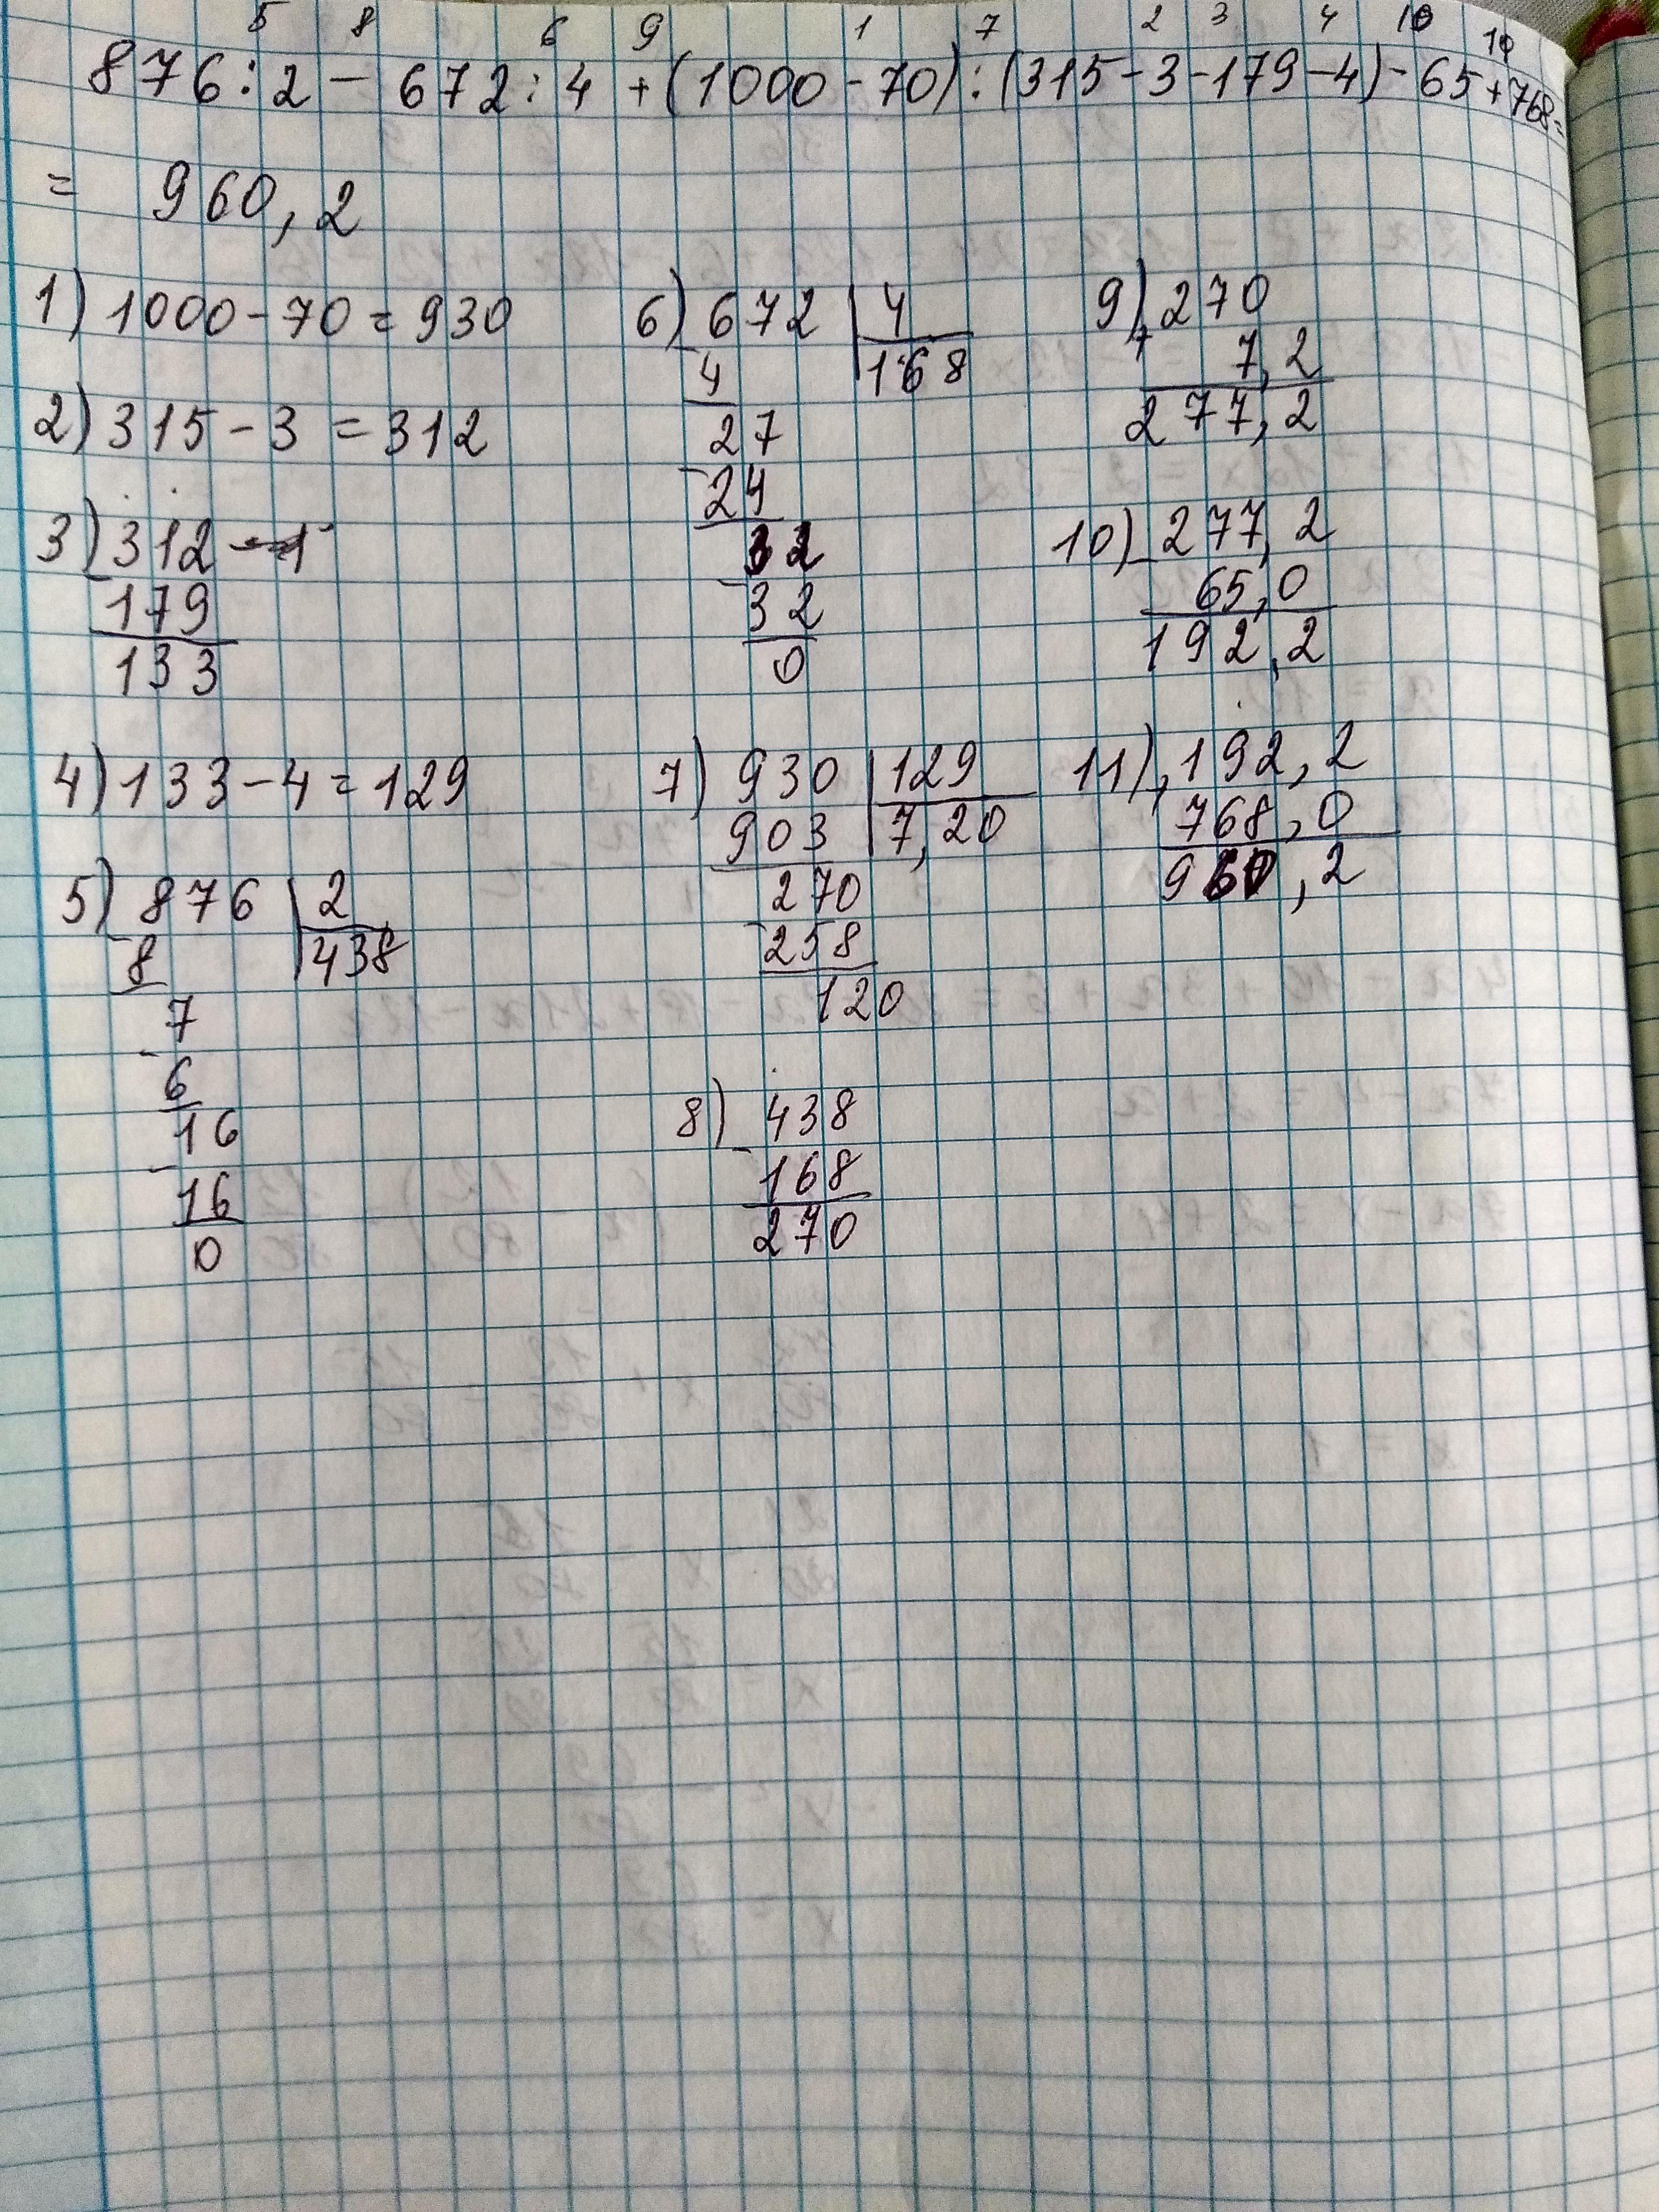 5 8 6 9 1 7 2 3 4 10 10
876:2 - 672:4 + (1000-70):(315-3-179-4)-65+768=
= 960,2
1) 1000-70=930
2) 315-3=312
3) 312
-179
133
4) 133-4=129
5) 876 | 2
-8 | 438
7
-6
16
-16
0
6) 672 | 4
-4 | 168
27
-24
32
-32
0
7) 930 | 129
903 | 7,20
270
-258
120
8) 438
-168
270
9) 270
+ 7,2
277,2
10) 277,2
- 65,0
192,2
11) 192,2
+ 768,0
960,2